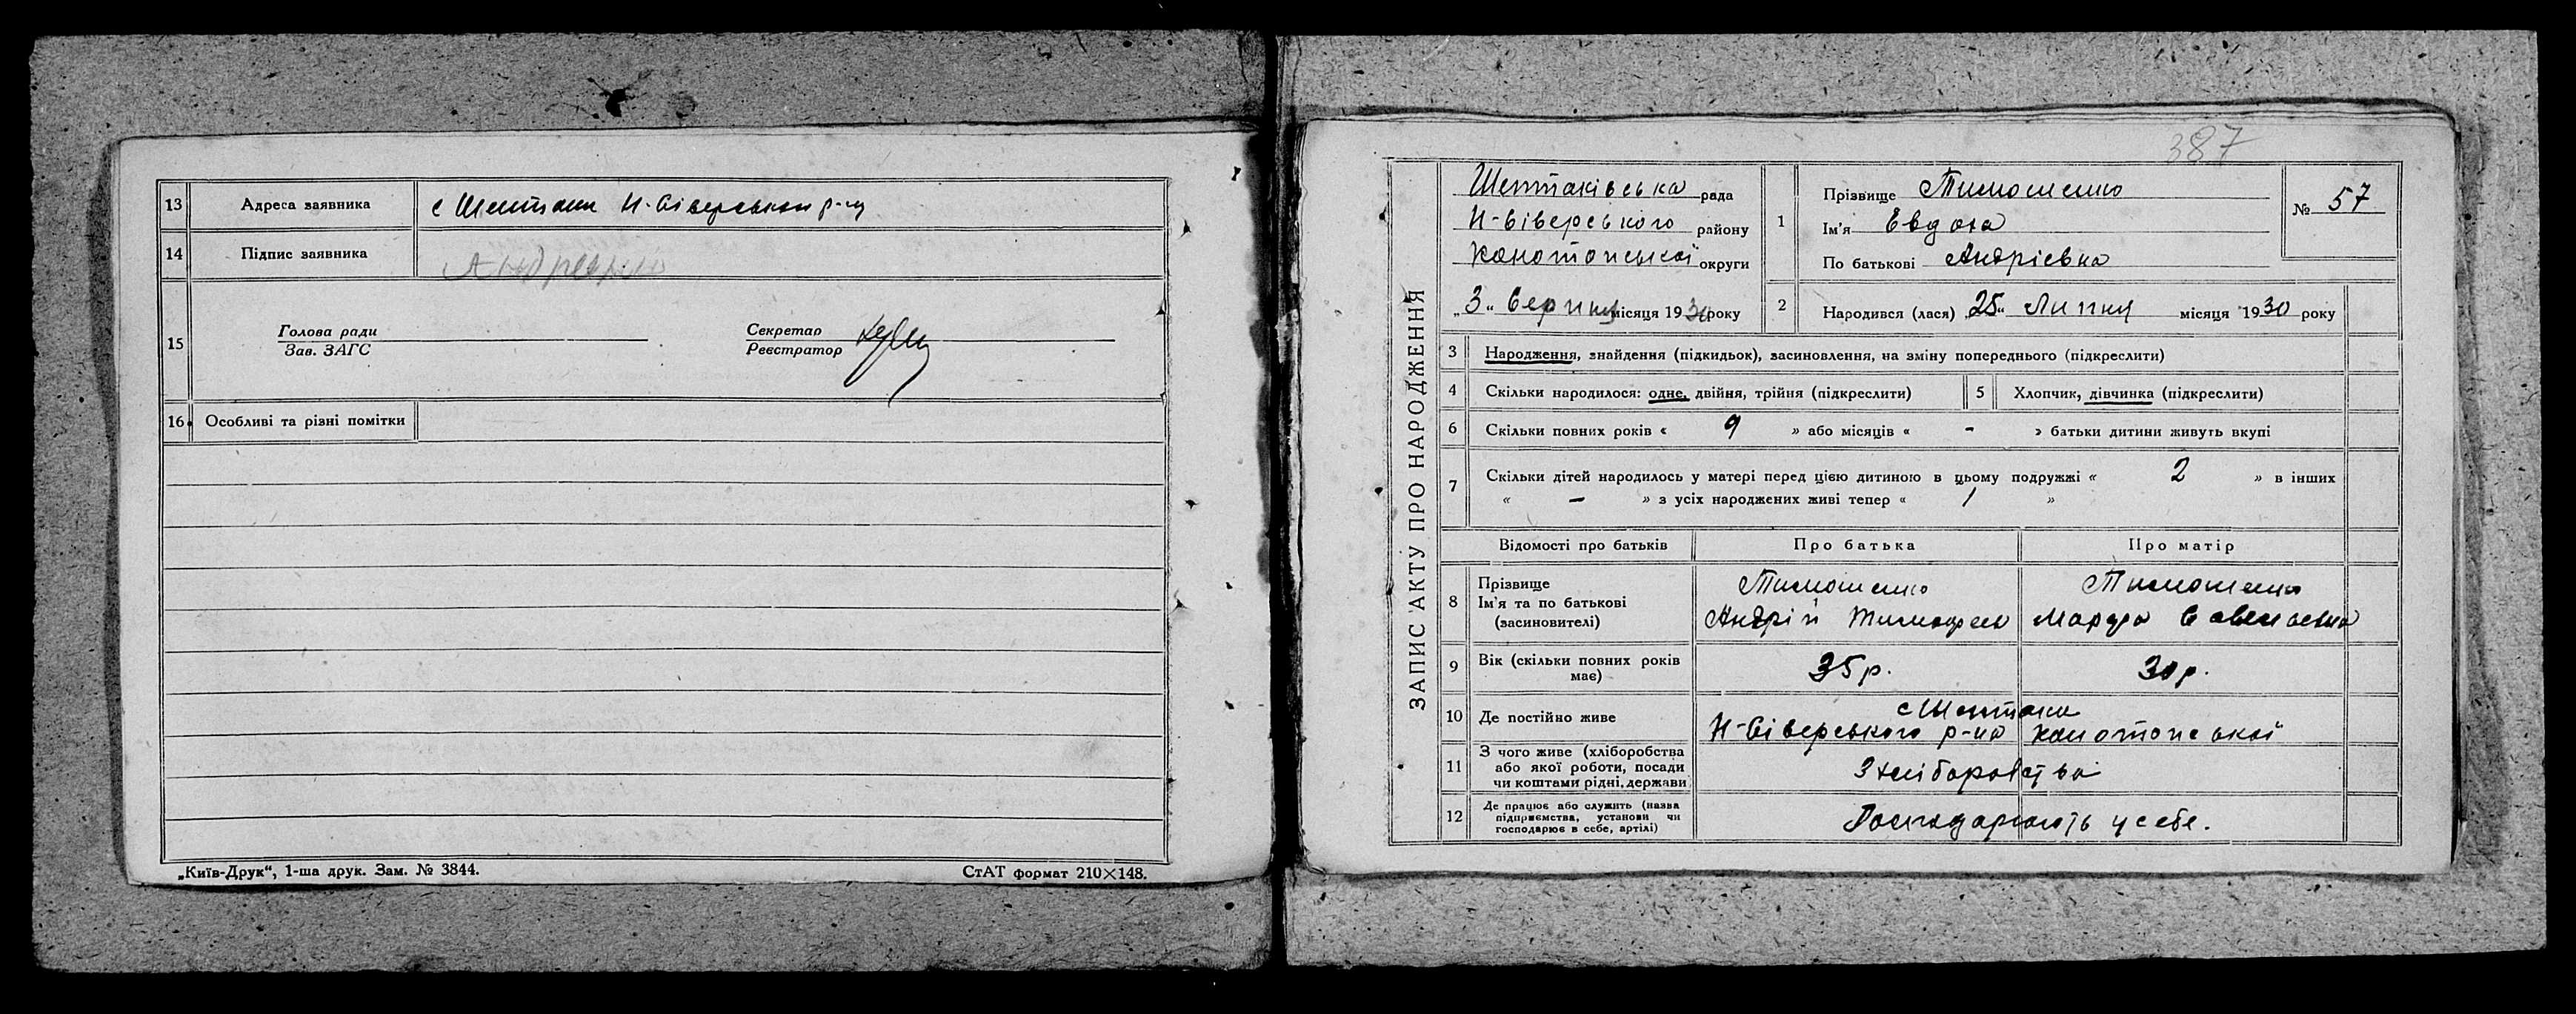 13 Адреса заявника с Шептаки Н-Сіверського р-ну
14 Підпис заявника
15 Голова ради
Зав. ЗАГС
Секретар
Реєстратор
16 Особливі та різні помітки
„Київ-Друк“, 1-ша друк. Зам. № 3844.
СтАТ формат 210×148.
387
ЗАПИС АКТУ ПРО НАРОДЖЕННЯ
Шептаківська рада
Н-Сіверського району
Конотопської округи
„3“ Серпня місяця 1930 року
1 Прізвище Тимошенко
Ім'я Евдоха
По батькові Андріевна
№ 57
2 Народився (лася) „25“ Липня місяця 1930 року
3 Народження, знайдення (підкидьок), засиновлення, на зміну попереднього (підкреслити)
4 Скільки народилося: одне, двійня, трійня (підкреслити) 5 Хлопчик, дівчинка (підкреслити)
6 Скільки повних років « 9 » або місяців « - » батьки дитини живуть вкупі
7 Скільки дітей народилось у матері перед цією дитиною в цьому подружжі « 2 » в інших
« – » з усіх народжених живі тепер « 1 »
Відомості про батьків Про батька Про матір
8 Прізвище
Ім'я та по батькові
(засиновителі)
Тимошенко
Андрій Тимофеев
Тимошенко
Марфа
9 Вік (скільки повних років
має)
35 р. 30 р.
10 Де постійно живе
с Шептаки
Н-Сіверського р-на Конотопської
11 З чого живе (хліборобства
або якої роботи, посади
чи коштами рідні, держави
З хліборобства
12 Де працює або служить (назва
підприємства, установи чи
господарює в себе, артілі)
Господарюють у себе.